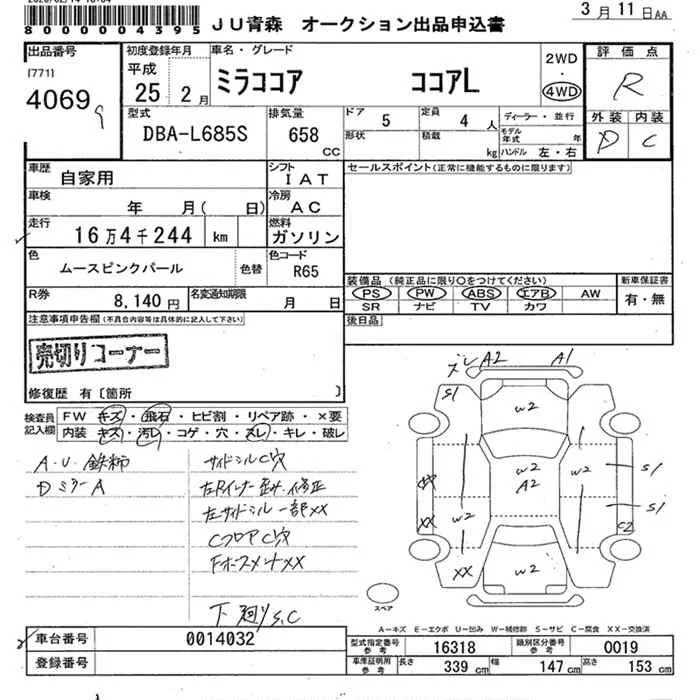 80000004395
JU青森 オークション出品申込書
3月11日AA
出品番号
[771]
4069
初度登録年月
平成
25 2月
車名・グレード
ミラココア ココアL
2WD
・
4WD
評価点
R
外装 内装
D C
型式
DBA-L685S
排気量
658
CC
ドア
5
定員
4 人
形状
積載
kg
ディーラー・並行
モデル
年式 年
ハンドル 左・右
車歴
自家用
シフト
IAT
セールスポイント(正常に機能するものに限ります)
車検
年 月( 日)
冷房
AC
走行
16万4千244 km
燃料
ガソリン
色
ムースピンクパール
色替
色コード
R65
R券
8,140円
名変通知期限
月 日
装備品(純正品に限り○をつけてください)
PS PW ABS エアB AW
SR ナビ TV カワ
新車保証書
有・無
後日品
注意事項申告欄(不具合内容等は具体的に記入して下さい)
売切りコーナー
修復歴 有〔箇所 〕
検査員
記入欄
FW キズ・飛石・ヒビ割・リペア跡・×要
内装 キズ・汚レ・コゲ・穴・スレ・キレ・破レ
A.U 鉄柿
Dミラー A
サイドシルC穴
左サイドシル一部XX
CフロアC穴
下廻りS,C
ズレ A2 A1
S1
W2
W2
A2
W2
S1
S1
W2
XX
C2
XX
W2
スペア
A―キズ E―エクボ U―凹み W―補修跡 S―サビ C―腐食 XX―交換済
車台番号
0014032
登録番号
型式指定番号
参考
16318
類別区分番号
参考
0019
車庫証明用
参考
長さ
339 cm
幅
147 cm
高さ
153 cm